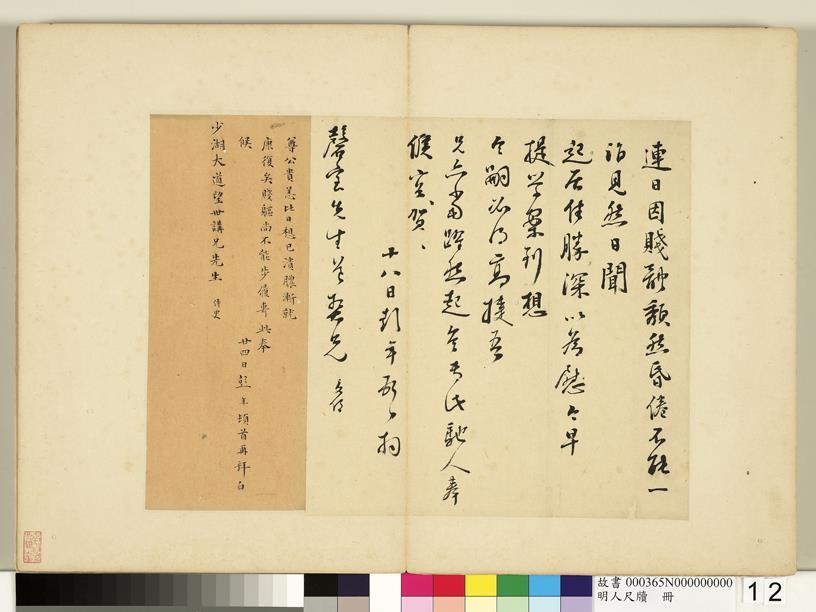 連日因賤體頹然昏倦不能一
詣見然日聞
起居佳勝深以為慰今早
提學案到想
令嗣必得高擢吾
兄亦當躍然起矣專此馳人奉
候宜賀
十八日彭年頓首拜
先生尊契兄
尊公貴恙比日想已潰膿漸就
康復矣賤軀尚不能步履專此奉
候
廿四日彭年頓首再拜白
少湖大道望世講兄先生 侍史
故書 000365N000000000
明人尺牘 冊
1 2